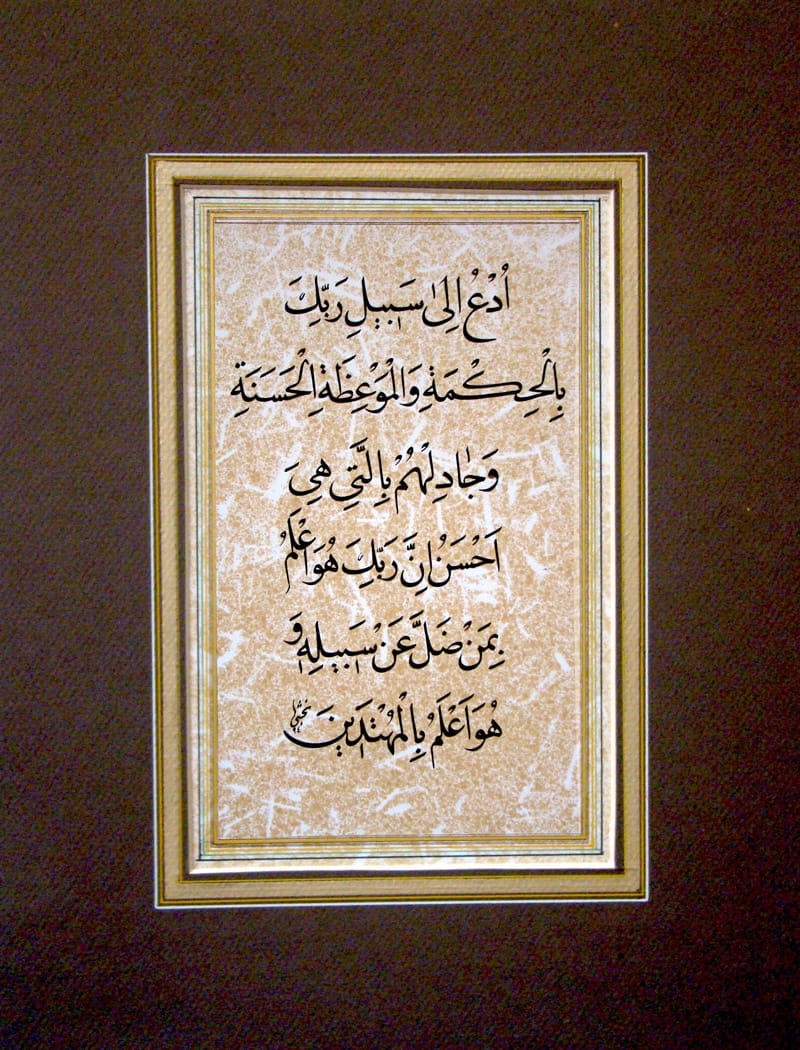 اُدْعُ اِلىٰ سَبیلِ رَبِّكَ
بِالْحِكْمَةِ وَالْمَوْعِظَةِ الْحَسَنَةِ
وَجٰادِلْهُمْ بِالَّتي هِيَ
اَحْسَنُ اِنَّ رَبَّكَ هُوَ اَعْلَمُ
بِمَنْ ضَلَّ عَنْ سَبیلِهِ وَ
هُوَ اَعْلَمُ بِالْمُهْتَدینَ